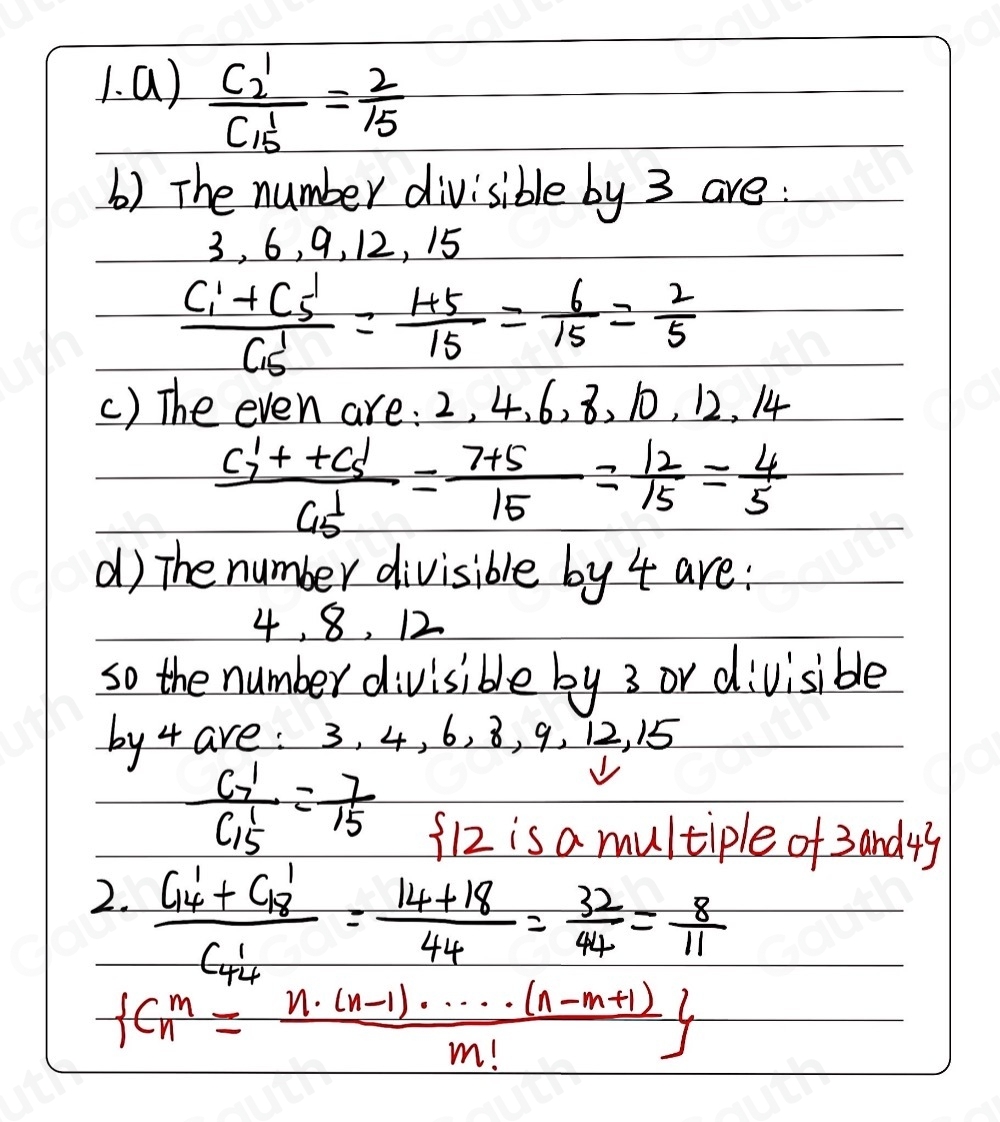 1. a) C₂¹/C₁₅¹ = 2/15
b) The number divisible by 3 are:
3, 6, 9, 12, 15
(C₁¹ + C₅¹)/C₁₅¹ = (1+5)/15 = 6/15 = 2/5
c) The even are: 2, 4, 6, 8, 10, 12, 14
(C₇¹ + + C₅¹)/C₁₅¹ = (7+5)/15 = 12/15 = 4/5
d) The number divisible by 4 are:
4, 8, 12
so the number divisible by 3 or divisible
by 4 are: 3, 4, 6, 8, 9, 12, 15
↓
C₇¹/C₁₅¹ = 7/15
{12 is a multiple of 3 and 4}
2. (C₁₄¹ + C₁₈¹)/C₄₄¹ = (14+18)/44 = 32/44 = 8/11
{Cₙᵐ = (n·(n-1)·.....·(n-m+1))/m!}
Gauth